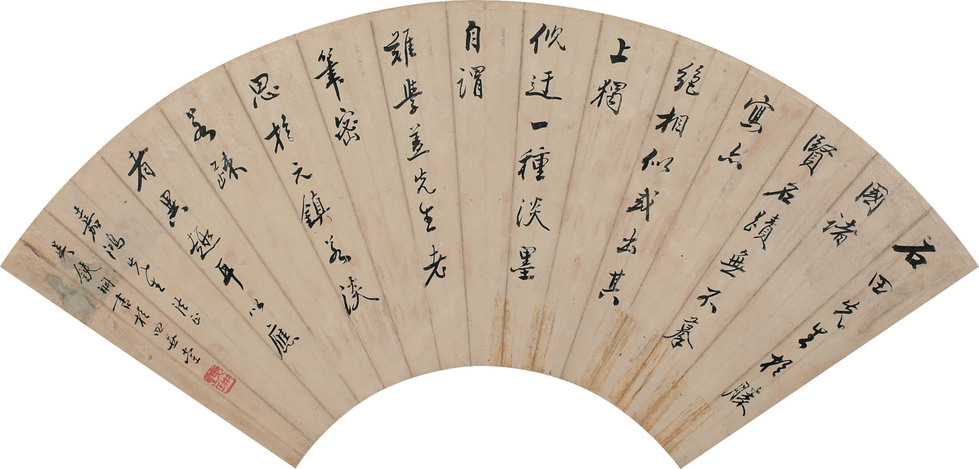 石田先生於勝
國諸
賢名蹟無不摹
寫亦
絕相似或出其
上獨
倪迂一種淡墨
自謂
難學蓋先生老
筆密
思於元鎮若淡
若疎
者異趣耳以應
嘉鴻先生法正
吳 桐書於四 堂